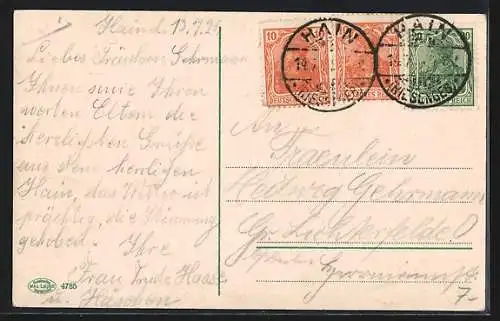 Haind. 13.7.20
Liebes Fräulein Gehrmann
Ihnen sowie Ihren
werten Eltern die
herzlichsten Grüße
aus dem herrlichen
Hain, das Wetter ist
prächtig, die Stimmung
gehoben. Ihre
Frau Trude Haase
u. Häschen
10
HAIN
(RIESENGEB.)
HAIN
(RIESENGEB.)
An
Fraeulein
Hedwig Gehrmann
Gr. Lichterfelde O
7
4786